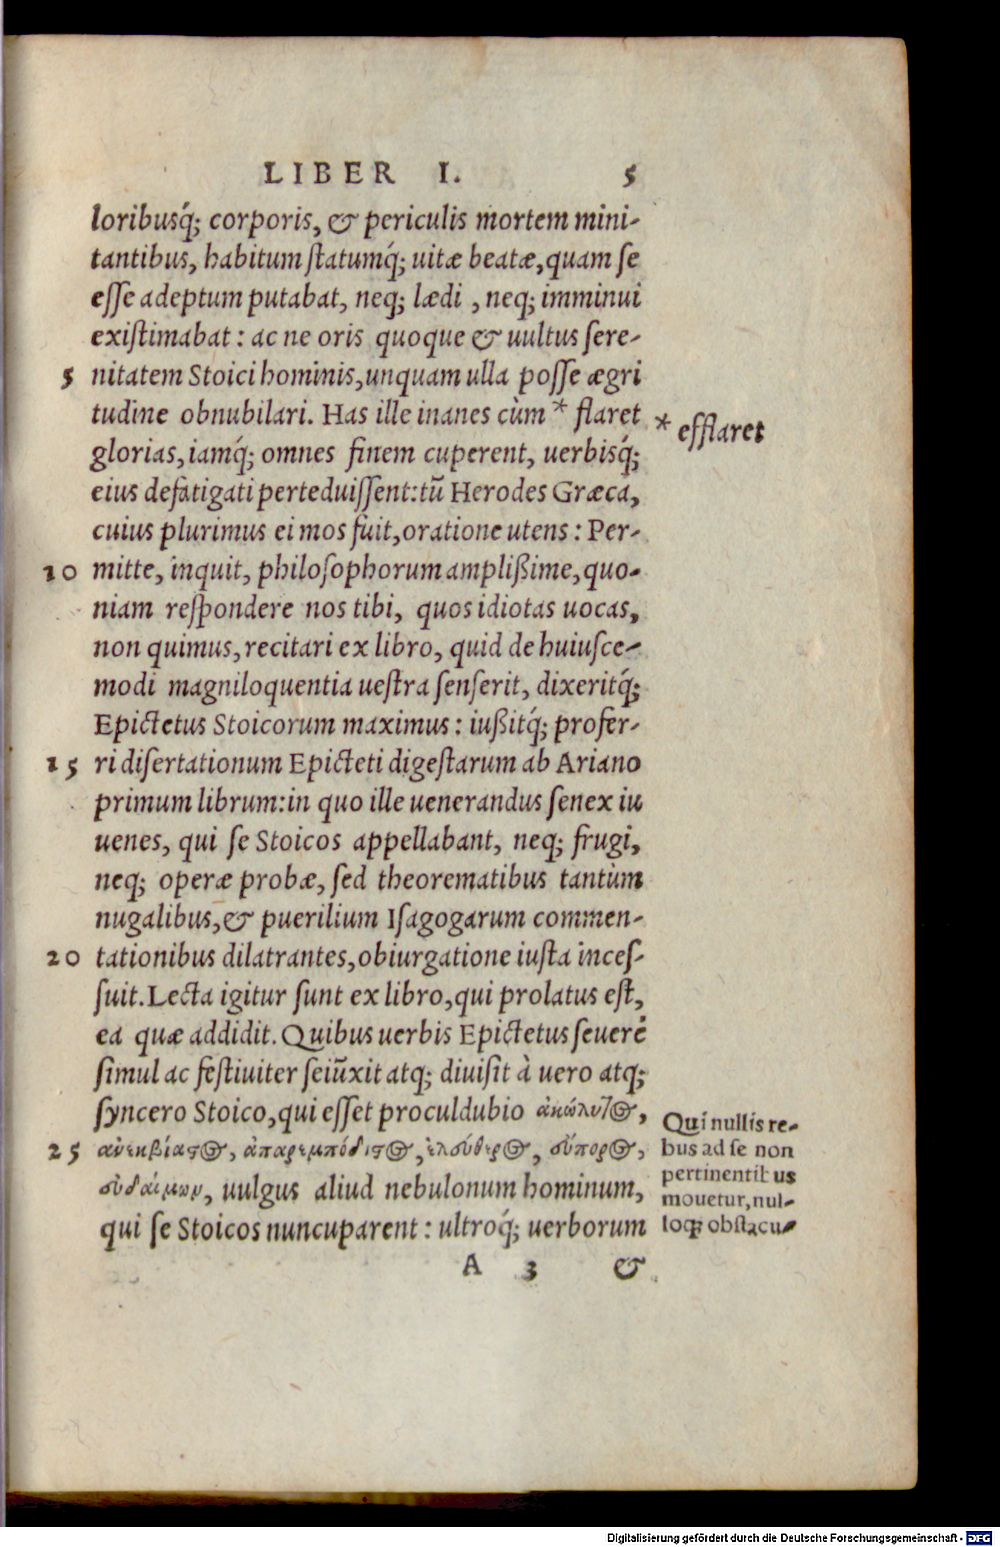 LIBER I. 5
loribusq́; corporis, & periculis mortem mini-
tantibus, habitum statumq́; uitæ beatæ, quam se
esse adeptum putabat, neq; lædi, neq; imminui
existimabat: ac ne oris quoque & uultus sere-
5 nitatem Stoici hominis, unquam ulla posse ægri
tudine obnubilari. Has ille inanes cùm * flaret
* efflaret
glorias, iamq́; omnes finem cuperent, uerbisq́;
eius defatigati perteduissent: tũ Herodes Græca,
cuius plurimus ei mos fuit, oratione utens: Per-
10 mitte, inquit, philosophorum amplißime, quo-
niam respondere nos tibi, quos idiotas uocas,
non quimus, recitari ex libro, quid de huiusce-
modi magniloquentia uestra senserit, dixeritq́;
Epictetus Stoicorum maximus: iußitq́; profer-
15 ri disertationum Epicteti digestarum ab Ariano
primum librum: in quo ille uenerandus senex iu
uenes, qui se Stoicos appellabant, neq; frugi,
neq; operæ probæ, sed theorematibus tantùm
nugalibus, & puerilium Isagogarum commen-
20 tationibus dilatrantes, obiurgatione iusta inces-
suit. Lecta igitur sunt ex libro, qui prolatus est,
ea quæ addidit. Quibus uerbis Epictetus seuerè
simul ac festiuiter seiũxit atq; diuisit à uero atq;
syncero Stoico, qui esset proculdubio ἀκώλυτος,
25 ἀνεκβίαστος, ἀπαρεμπόδιστος, ἐλεύθερος, εὔπορος,
εὐδαίμων, uulgus aliud nebulonum hominum,
qui se Stoicos nuncuparent: ultroq́; uerborum
Qui nullis re-
bus ad se non
pertinentibus
mouetur, nul-
loq; obstacu-
A 3 &
Digitalisierung gefördert durch die Deutsche Forschungsgemeinschaft - DFG